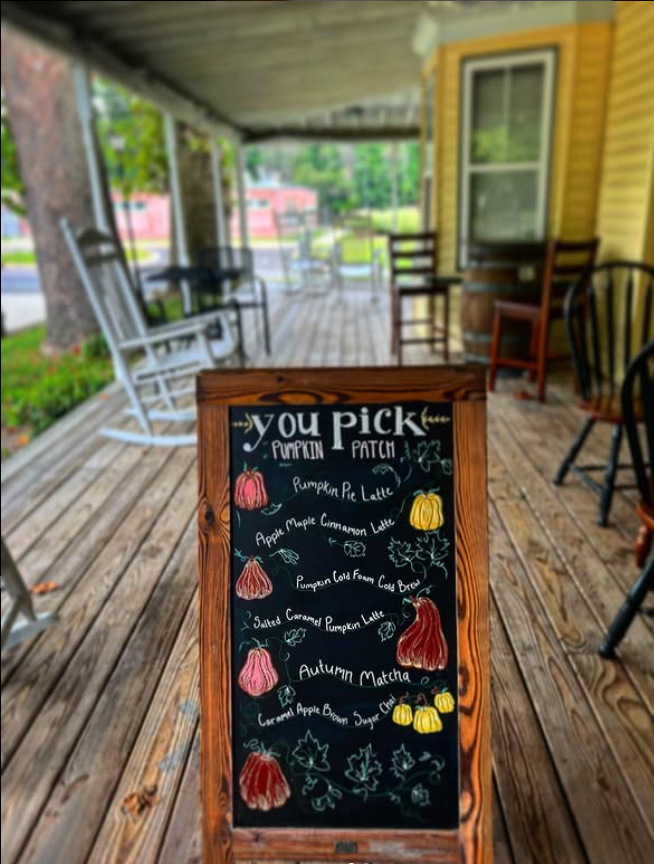 you pick
PUMPKIN PATCH
Pumpkin Pie Latte
Apple Maple Cinnamon Latte
Pumpkin Cold Foam Cold Brew
Salted Caramel Pumpkin Latte
Autumn Matcha
Caramel Apple Brown Sugar Chai